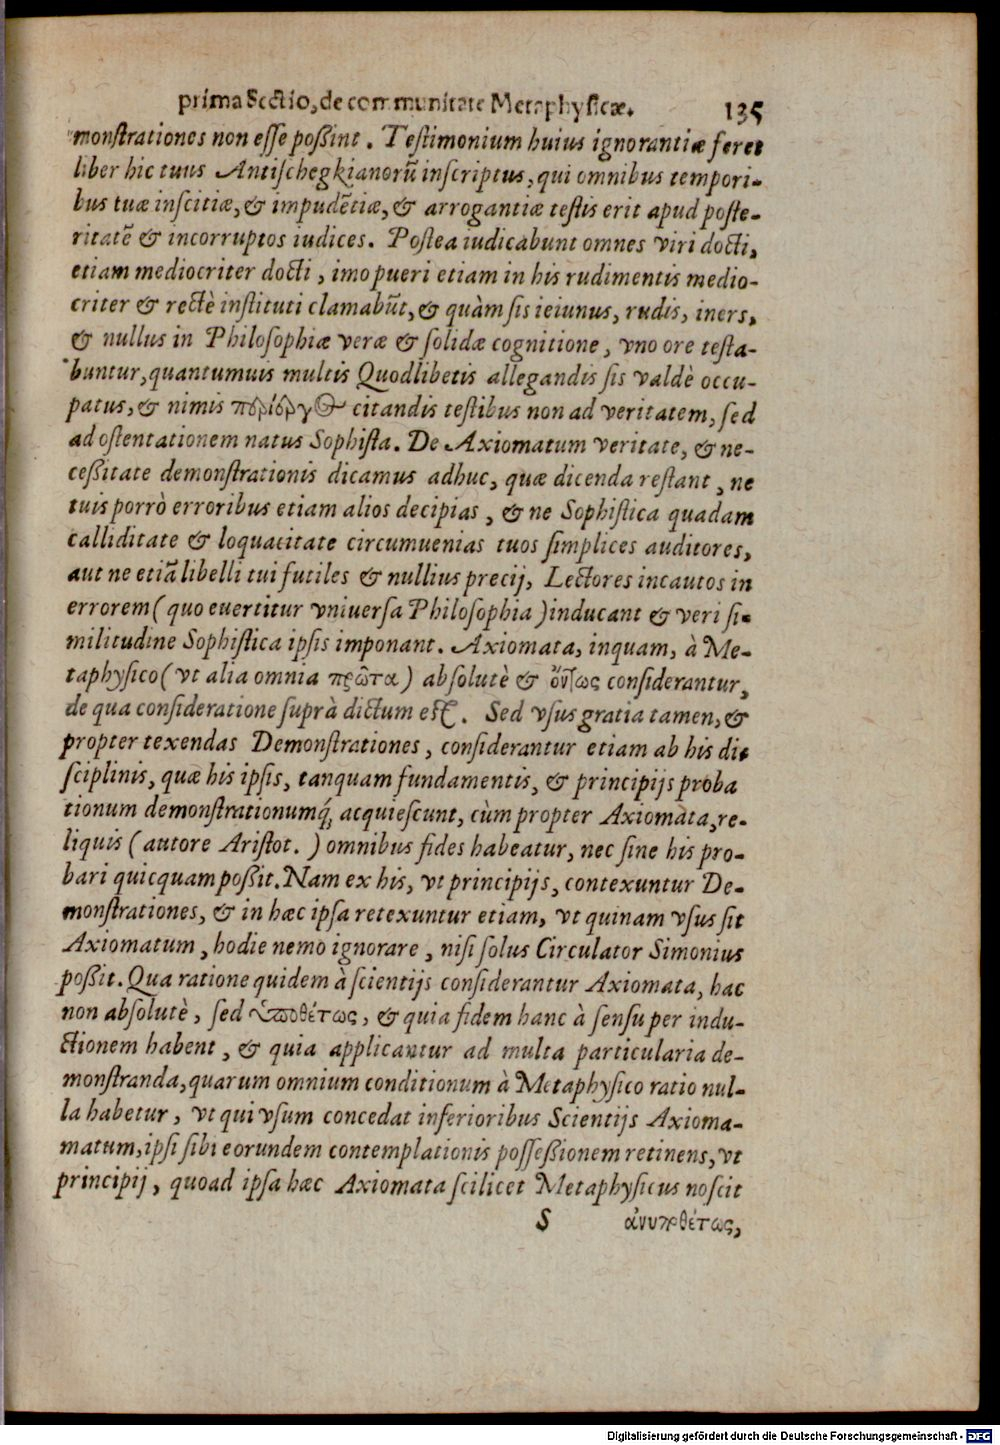 prima Sectio, de communitate Metaphysicæ. 135
monstrationes non esse poßint. Testimonium huius ignorantiæ feret
liber hic tuus Antischegkianorũ inscriptus, qui omnibus tempori-
bus tuæ inscitiæ, & impudẽtiæ, & arrogantiæ testis erit apud poste-
ritatẽ & incorruptos iudices. Postea iudicabunt omnes viri docti,
etiam mediocriter docti, imo pueri etiam in his rudimentis medio-
criter & rectè instituti clamabũt, & quàm sis ieiunus, rudis, iners,
& nullus in Philosophiæ veræ & solidæ cognitione, vno ore testa-
buntur, quantumuis multis Quodlibetis allegandis sis valdè occu-
patus, & nimis περίεργος citandis testibus non ad veritatem, sed
ad ostentationem natus Sophista. De Axiomatum veritate, & ne-
ceßitate demonstrationis dicamus adhuc, quæ dicenda restant, ne
tuis porrò erroribus etiam alios decipias, & ne Sophistica quadam
calliditate & loquacitate circumuenias tuos simplices auditores,
aut ne etiã libelli tui futiles & nullius precij, Lectores incautos in
errorem (quo euertitur vniuersa Philosophia) inducant & veri si-
militudine Sophistica ipsis imponant. Axiomata, inquam, à Me-
taphysico (vt alia omnia πρῶτα) absolutè & ὄντως considerantur,
de qua consideratione suprà dictum est. Sed vsus gratia tamen, &
propter texendas Demonstrationes, considerantur etiam ab his di-
sciplinis, quæ his ipsis, tanquam fundamentis, & principijs proba
tionum demonstrationumq́; acquiescunt, cùm propter Axiomata, re-
liquis (autore Aristot.) omnibus fides habeatur, nec sine his pro-
bari quicquam poßit. Nam ex his, vt principijs, contexuntur De-
monstrationes, & in hæc ipsa retexuntur etiam, vt quinam vsus sit
Axiomatum, hodie nemo ignorare, nisi solus Circulator Simonius
poßit. Qua ratione quidem à scientijs considerantur Axiomata, hac
non absolutè, sed ὑποθέτως, & quia fidem hanc à sensu per indu-
ctionem habent, & quia applicantur ad multa particularia de-
monstranda, quarum omnium conditionum à Metaphysico ratio nul-
la habetur, vt qui vsum concedat inferioribus Scientijs Axioma-
matum, ipsi sibi eorundem contemplationis possessionem retinens, vt
principij, quoad ipsa hæc Axiomata scilicet Metaphysicus noscit
S ἀνυποθέτως,
Digitalisierung gefördert durch die Deutsche Forschungsgemeinschaft - DFG